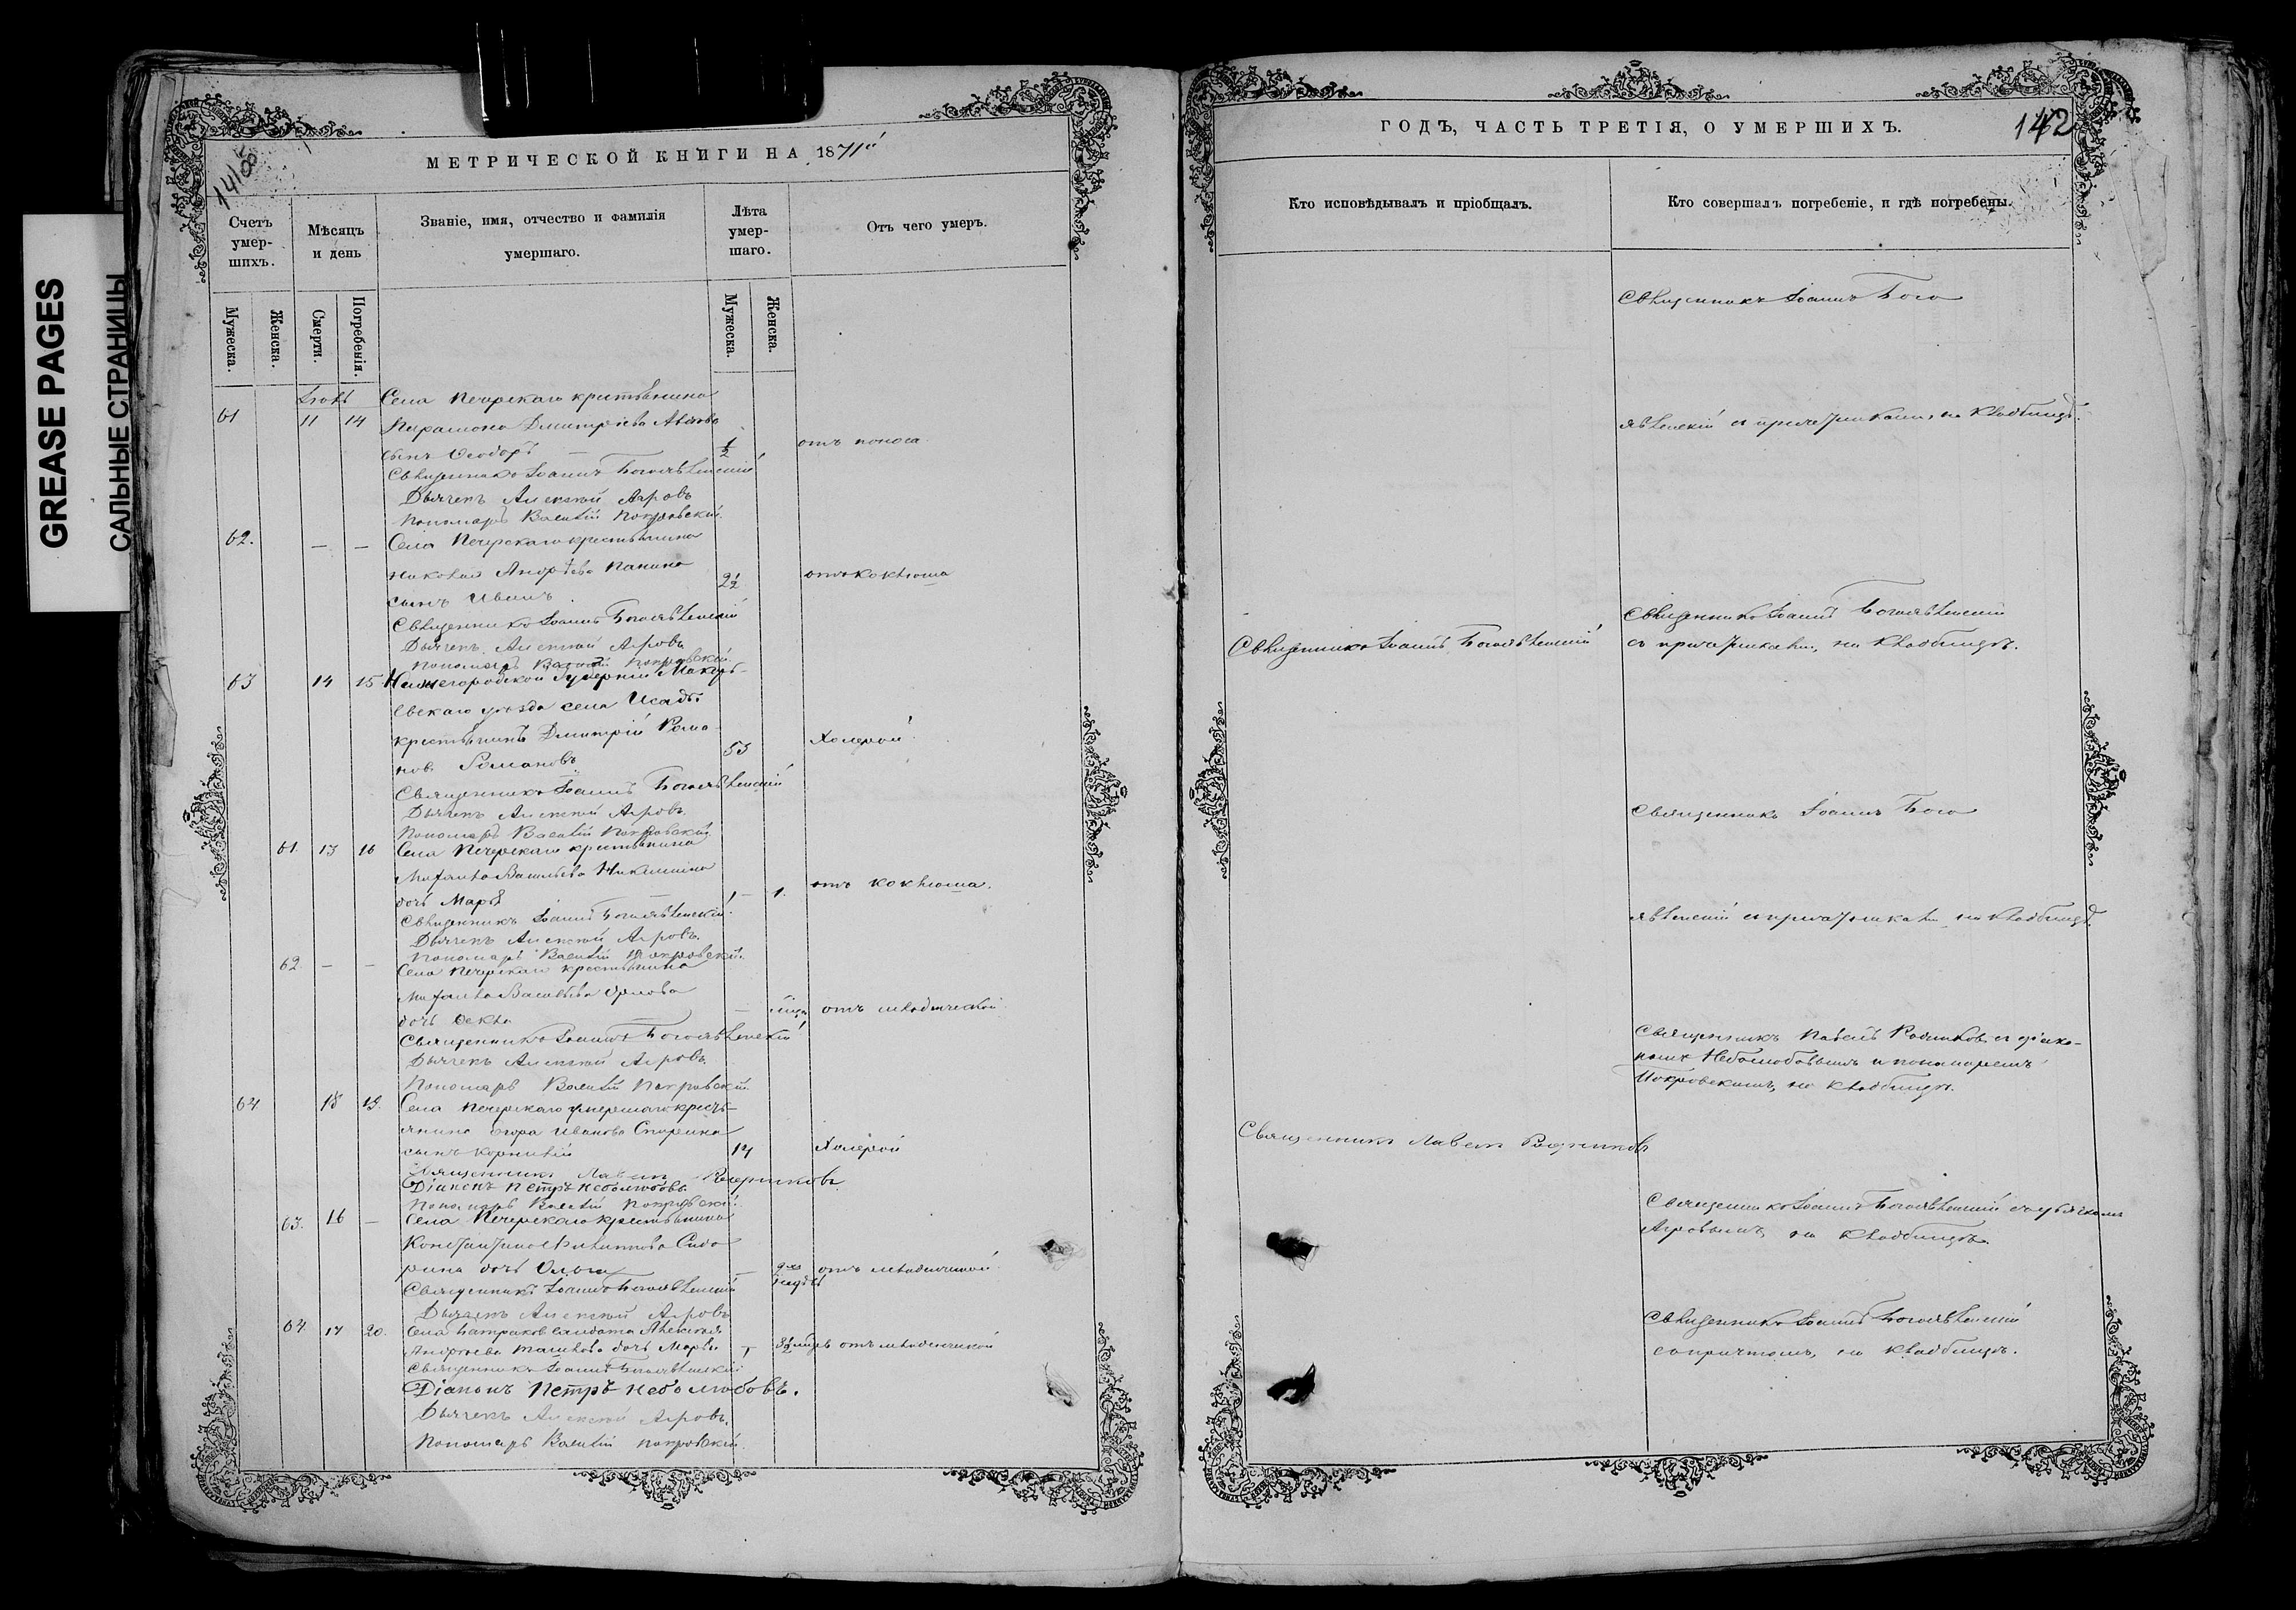 GREASE PAGES
САЛЬНЫЕ СТРАНИЦЫ
МЕТРИЧЕСКОЙ КНИГИ НА 1871й
Счетъ умер-шихъ.
Мѣсяцъ и день
Званіе, имя, отчество и фамилія умершаго.
Лѣта умер-шаго.
Отъ чего умеръ.
Мужеска.
Женска.
Смерти.
Погребенія.
Мужеска.
Женска.
Села Печерскаго крестьянина
61 11 14 Парамона Дмитріева
сынъ Ѳеодоръ — ½ отъ поноса
Священникъ Іоаннъ Богоявленскій
Дьячекъ Алексѣй Агровъ
Пономарь Василій Покровскій.
62. — — Села Печерскаго крестьянина
Николая Андреева Панина
сынъ Иванъ. 2½ отъ коклюша
Священникъ Іоаннъ Богоявленскій
Дьячекъ Алексѣй Агровъ
Пономарь Василій Покровскій.
63 14 15 Нижегородской Губерніи Макарь-
евскаго уѣзда села Исады
крестьянинъ Дмитрій Рома-
нов Романовъ 53 Холерой.
Священникъ Іоаннъ Богоявленскій
Дьячекъ Алексѣй Агровъ.
Пономарь Василій Покровскій
61. 13 16 Села Печерскаго крестьянина
Михаила Васильева Никишина
дочь Марья — 1. отъ коклюша.
Священникъ Іоаннъ Богоявленскій.
Дьячекъ Алексѣй Агровъ.
Пономарь Василій Покровскій.
62 — — Села Печерскаго крестьянина
Михаила Васильева Орлова
дочь Ѳекла — отъ младенческой
Священникъ Іоаннъ Богоявленскій
Дьячекъ Алексѣй Агровъ
Пономарь Василій Покровскій.
64 18 19. Села Печерскаго умершаго кресть-
янина Егора Иванова Спорина
сынъ Корнилій 14 Холерой
Священникъ Павелъ Родниковъ
Діаконъ Петръ Неболюбовъ
Пономарь Василій Покровскій.
63. 16 — Села Печерскаго крестьянина
Константина Филиппова Сидо
рина дочь Ольга — 2хъ недѣль отъ младенческой
Священникъ Іоаннъ Богоявленскій
Дьячекъ Алексѣй Агровъ
64 17 20. Села Батраков солдата Алексѣя
Андреева дочь Марья 3½ мцъ отъ младенческой
Священникъ Іоаннъ Богоявленскій
Діаконъ Петръ Неболюбовъ.
Дьячекъ Алексѣй Агровъ.
Пономарь Василій Покровскій.
ГОДЪ, ЧАСТЬ ТРЕТІЯ, О УМЕРШИХЪ.
142
Кто исповѣдывалъ и пріобщалъ.
Кто совершалъ погребеніе, и гдѣ погребены.
Священникъ Іоаннъ Бого
явленскій съ причетниками, на кладбищѣ.
Священникъ Іоаннъ Богоявленскій
Священникъ Іоаннъ Богоявленскій
съ причетниками, на кладбищѣ.
Священникъ Іоаннъ Бого
явленскій съ причетниками на кладбищѣ.
Священникъ Павелъ Родниковъ съ діако-
номъ Неболюбовымъ и пономаремъ
Покровскимъ, на кладбищѣ.
Священникъ Павелъ Родниковъ
Священникъ Іоаннъ Богоявленскій съ дьячкомъ
Агровымъ, на кладбищѣ.
Священникъ Іоаннъ Богоявленскій
съ причтомъ, на кладбищѣ.